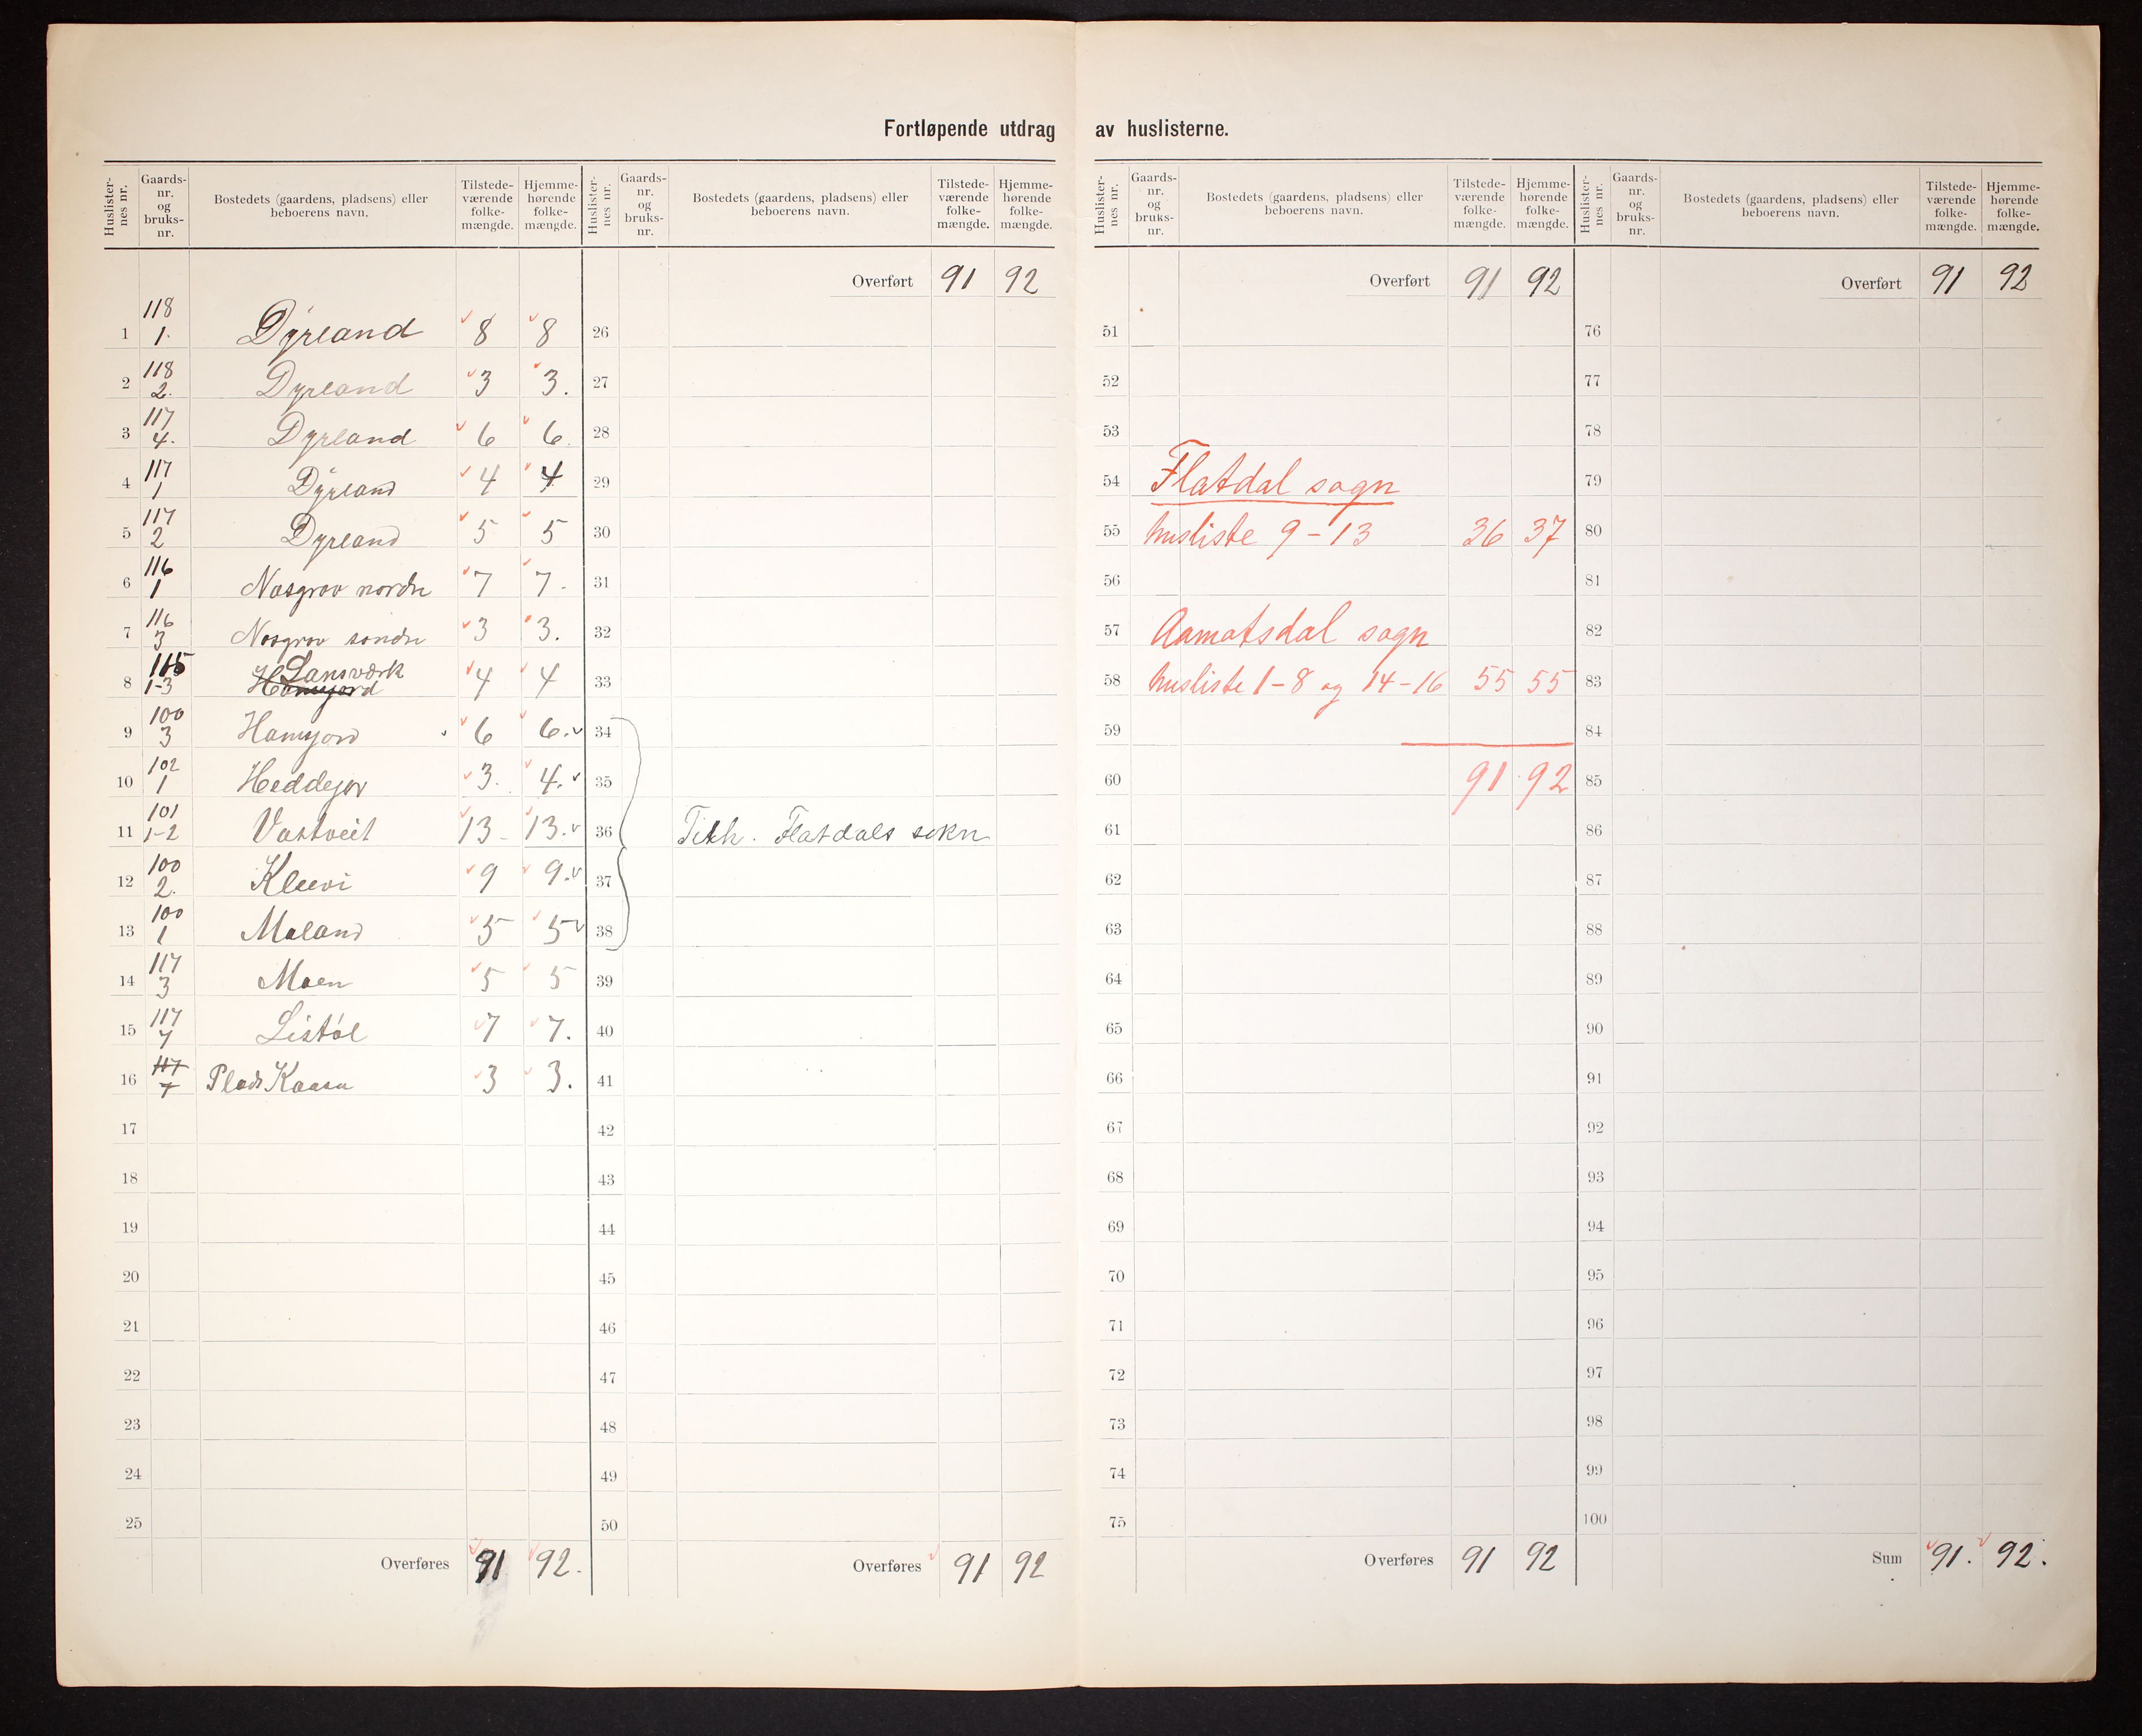 Fortløpende utdrag av huslisterne.
Huslister-nes nr. Gaards-nr. og bruks-nr. Bostedets (gaardens, pladsens) eller beboerens navn. Tilstede-værende folke-mængde. Hjemme-hørende folke-mængde.
118
1 1. Dÿrland 8 8
118
2 2. Dyrland 3 3.
117
3 4. Dyrland 6 6.
117
4 1 Dÿrland 4 4
117
5 2 Dyrland 5 5
116
6 1 Nasgrov nordre 7 7.
116
7 3 Nosgrov søndre 3 3.
115 Lansværk
8 1-3 Hamyord 4 4
100
9 3 Hamyord 6 6.
102
10 1 Heddejor 3. 4.
101
11 1-2 Vastveit 13 13.
100
12 2. Kleivi 9 9.
100
13 1 Maland 5 5
117
14 3 Moen 5 5
117
15 7 Listøl 7 7.
117
16 7 Plads Kaasa 3 3.
17
18
19
20
21
22
23
24
25
Overføres 91 92.
Huslister-nes nr. Gaards-nr. og bruks-nr. Bostedets (gaardens, pladsens) eller beboerens navn. Tilstede-værende folke-mængde. Hjemme-hørende folke-mængde.
Overført 91 92
26
27
28
29
30
31
32
33
34
35
36 Tilh. Flatdals sokn
37
38
39
40
41
42
43
44
45
46
47
48
49
50
Overføres 91 92
Huslister-nes nr. Gaards-nr. og bruks-nr. Bostedets (gaardens, pladsens) eller beboerens navn. Tilstede-værende folke-mængde. Hjemme-hørende folke-mængde.
Overført 91 92
51
52
53
54 Flatdal sogn
55 husliste 9-13 36 37
56
57 Aamotsdal sogn
58 husliste 1-8 og 14-16 55 55
59
60 91 92
61
62
63
64
65
66
67
68
69
70
71
72
73
74
75
Overføres 91 92
Huslister-nes nr. Gaards-nr. og bruks-nr. Bostedets (gaardens, pladsens) eller beboerens navn. Tilstede-værende folke-mængde. Hjemme-hørende folke-mængde.
Overført 91 92
76
77
78
79
80
81
82
83
84
85
86
87
88
89
90
91
92
93
94
95
96
97
98
99
100
Sum 91. 92.